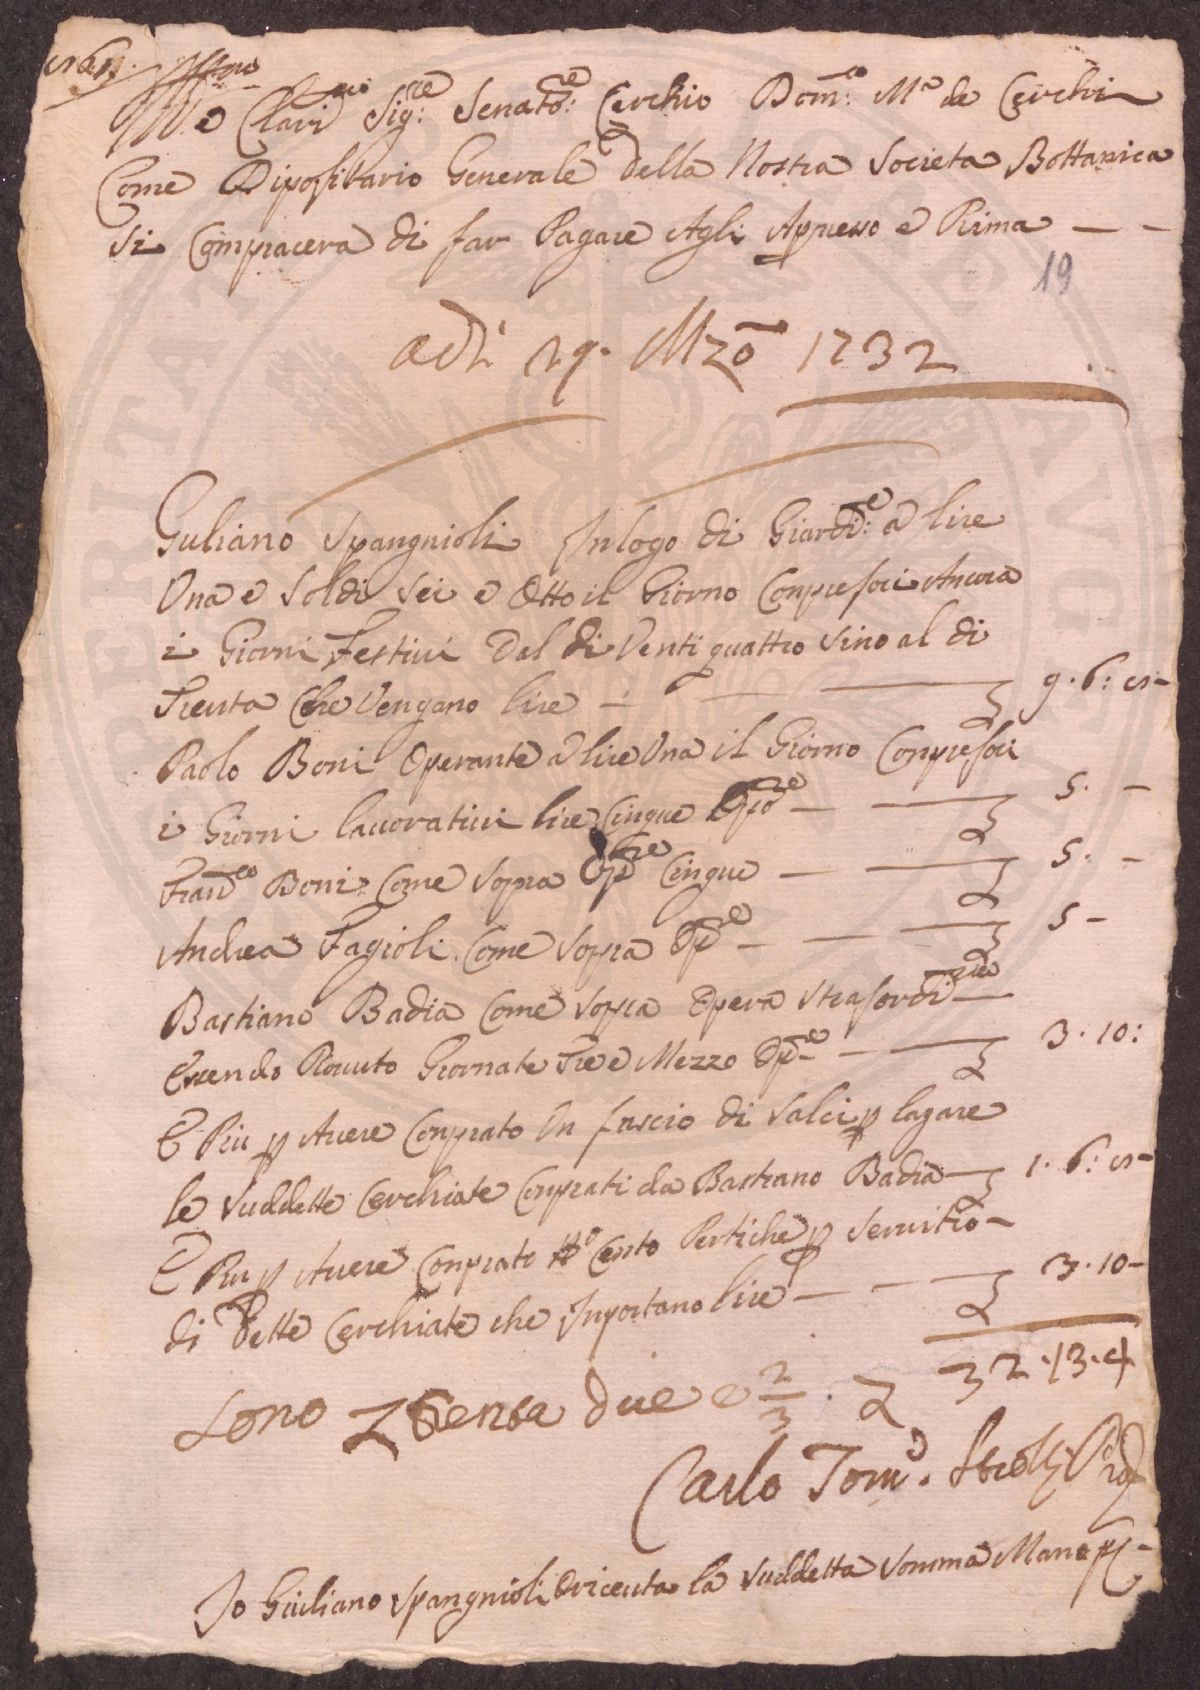 Ill.mo e Clari.mo Sig:re Senato:re Cerchio Dom:co M.a de Cerchi
Come Dipositario Generale della Nostra Societa Bottanica
si Compiacera di far Pagare Agli Apresso e Prima — —
19
adi 29. Mzo 1732
Guliano Spangnioli Inlogo di Giardi:e a lire
Una e Soldi Sei e Otto il Giorno Conpresoci Ancora
i Giorni Festiui Dal di Venti quattro Sino al di
Trenta Che Vengano lire — 9 . 6 : 8 -
Paolo Boni Operante a lire Una il Giorno Conpresoci
i Giorni lauoratiui lire Cinque — 5 . —
Fran.co Boni Come Sopra Cinque — 5 . —
Andrea Fagioli Come Sopra — 5 —
Bastiano Badia Come Sopra Opera Strasordi.ria
Essendo Giornate Tre e Mezzo — 3 . 10 :
E Piu p Auere Conprato Un fascio di Salci p lagare
le Suddette Cerchiate Conprati da Bastiano Badia — 1 . 6 : 8 -
E Piu p Auere Conprato No Cento Pertiche p Seruitio —
di Dette Cerchiate che Inportano lire — 3 . 10 —
32 . 13 . 4
Sono Trenta due e 2/3
Carlo Tom.o Strozzi
Io Giuliano Spangnioli O riceuta la Suddetta Somma Mano pp.a